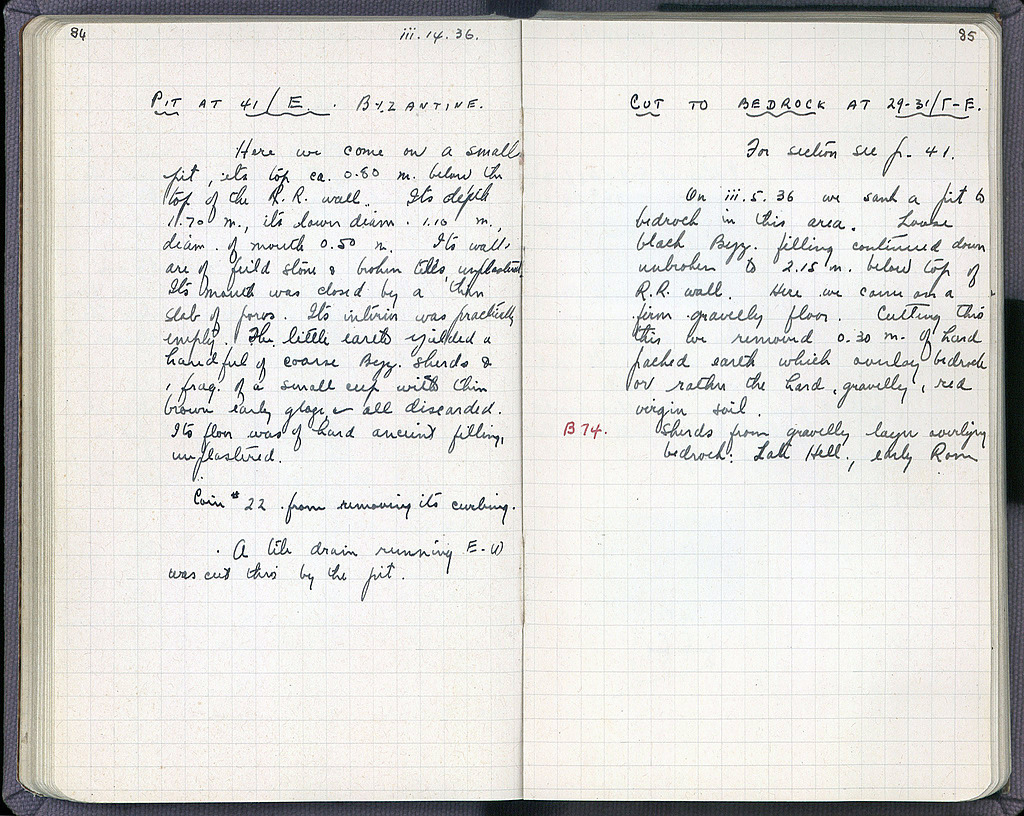 84
iii.14.36.
PIT AT 41/E. BYZANTINE.
Here we come on a small
pit, its top ca. 0.80 m. below the
top of the R.R. wall. Its depth
1.70 m., its lower diam. 1.10 m.,
diam. of mouth 0.50 m. Its walls
are of field stone & broken tiles, unplastered.
Its mouth was closed by a thin
slab of poros. Its interior was practically
empty. The little earth yielded a
handful of coarse Byz. sherds &
1 frag. of a small cup with thin
brown early glaze - all discarded.
Its floor was of hard ancient filling,
unplastered.
Coin # 22 from removing its curbing.
A tile drain running E-W
was cut thro by the pit.
85
CUT TO BEDROCK AT 29-31/Γ-E.
For section see p. 41.
On iii.5.36 we sank a pit to
bedrock in this area. Loose
black Byz. filling continued down
unbroken to 2.15 m. below top of
R.R. wall. Here we came on a
firm gravelly floor. Cutting thro
this we removed 0.30 m. of hard
packed earth which overlay bedrock
or rather the hard, gravelly, red
virgin soil.
B 74. Sherds from gravelly layer overlying
bedrock: Late Hell., early Rom